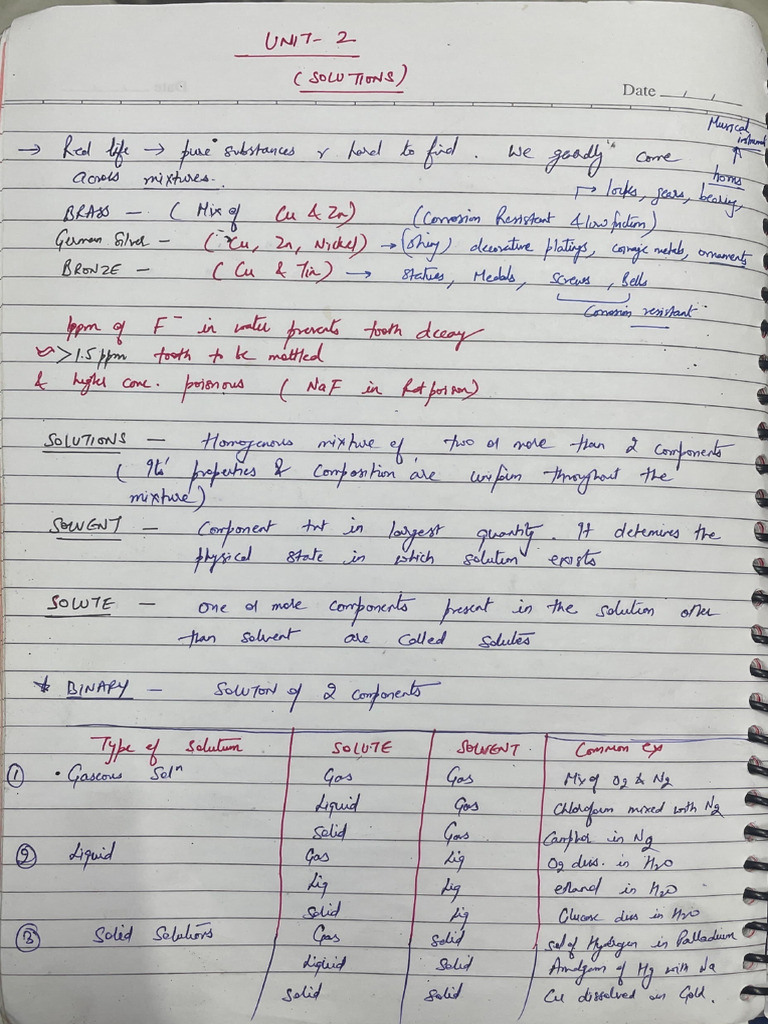 UNIT- 2
(SOLUTIONS)
Date / /
Musical instrument
→ Real life → pure substances r hard to find. We generally come
horns
across mixtures.
→ locks, gears, bearing,
BRASS — (Mix of Cu & Zn) (Corrosion Resistant & low friction)
German Silver — (Cu, Zn, Nickel) → (shiny) decorative platings, coinage metals, ornaments
BRONZE — (Cu & Tin) → statues, Medals, screws, Bells
Corrosion resistant
1ppm of F⁻ in water prevents tooth decay
>1.5 ppm tooth to be mottled
& higher conc. poisonous (NaF in Rat poison)
SOLUTIONS — Homogenous mixture of two or more than 2 components
(Its' properties & composition are uniform throughout the
mixture)
SOLVENT — Component tht in largest quantity. It detemines the
physical state in which solution exists
SOLUTE — one or more components present in the solution other
than solvent are called solutes
* BINARY — SOLUTON of 2 components
Type of solution SOLUTE SOLVENT Common ex
① • Gaseous Solⁿ Gas Gas Mix of O2 & N2
Liquid Gas Chloroform mixed with N2
Solid Gas Camphor in N2
② Liquid Gas Liq O2 diss. in H2O
Liq Liq ethanol in H2O
Solid Liq Glucose diss in H2O
③ Solid Solutions Gas Solid sol of Hydrogen in Palladium
Liquid Solid Amalgam of Hg with Na
Solid Solid Cu dissolved in Gold.